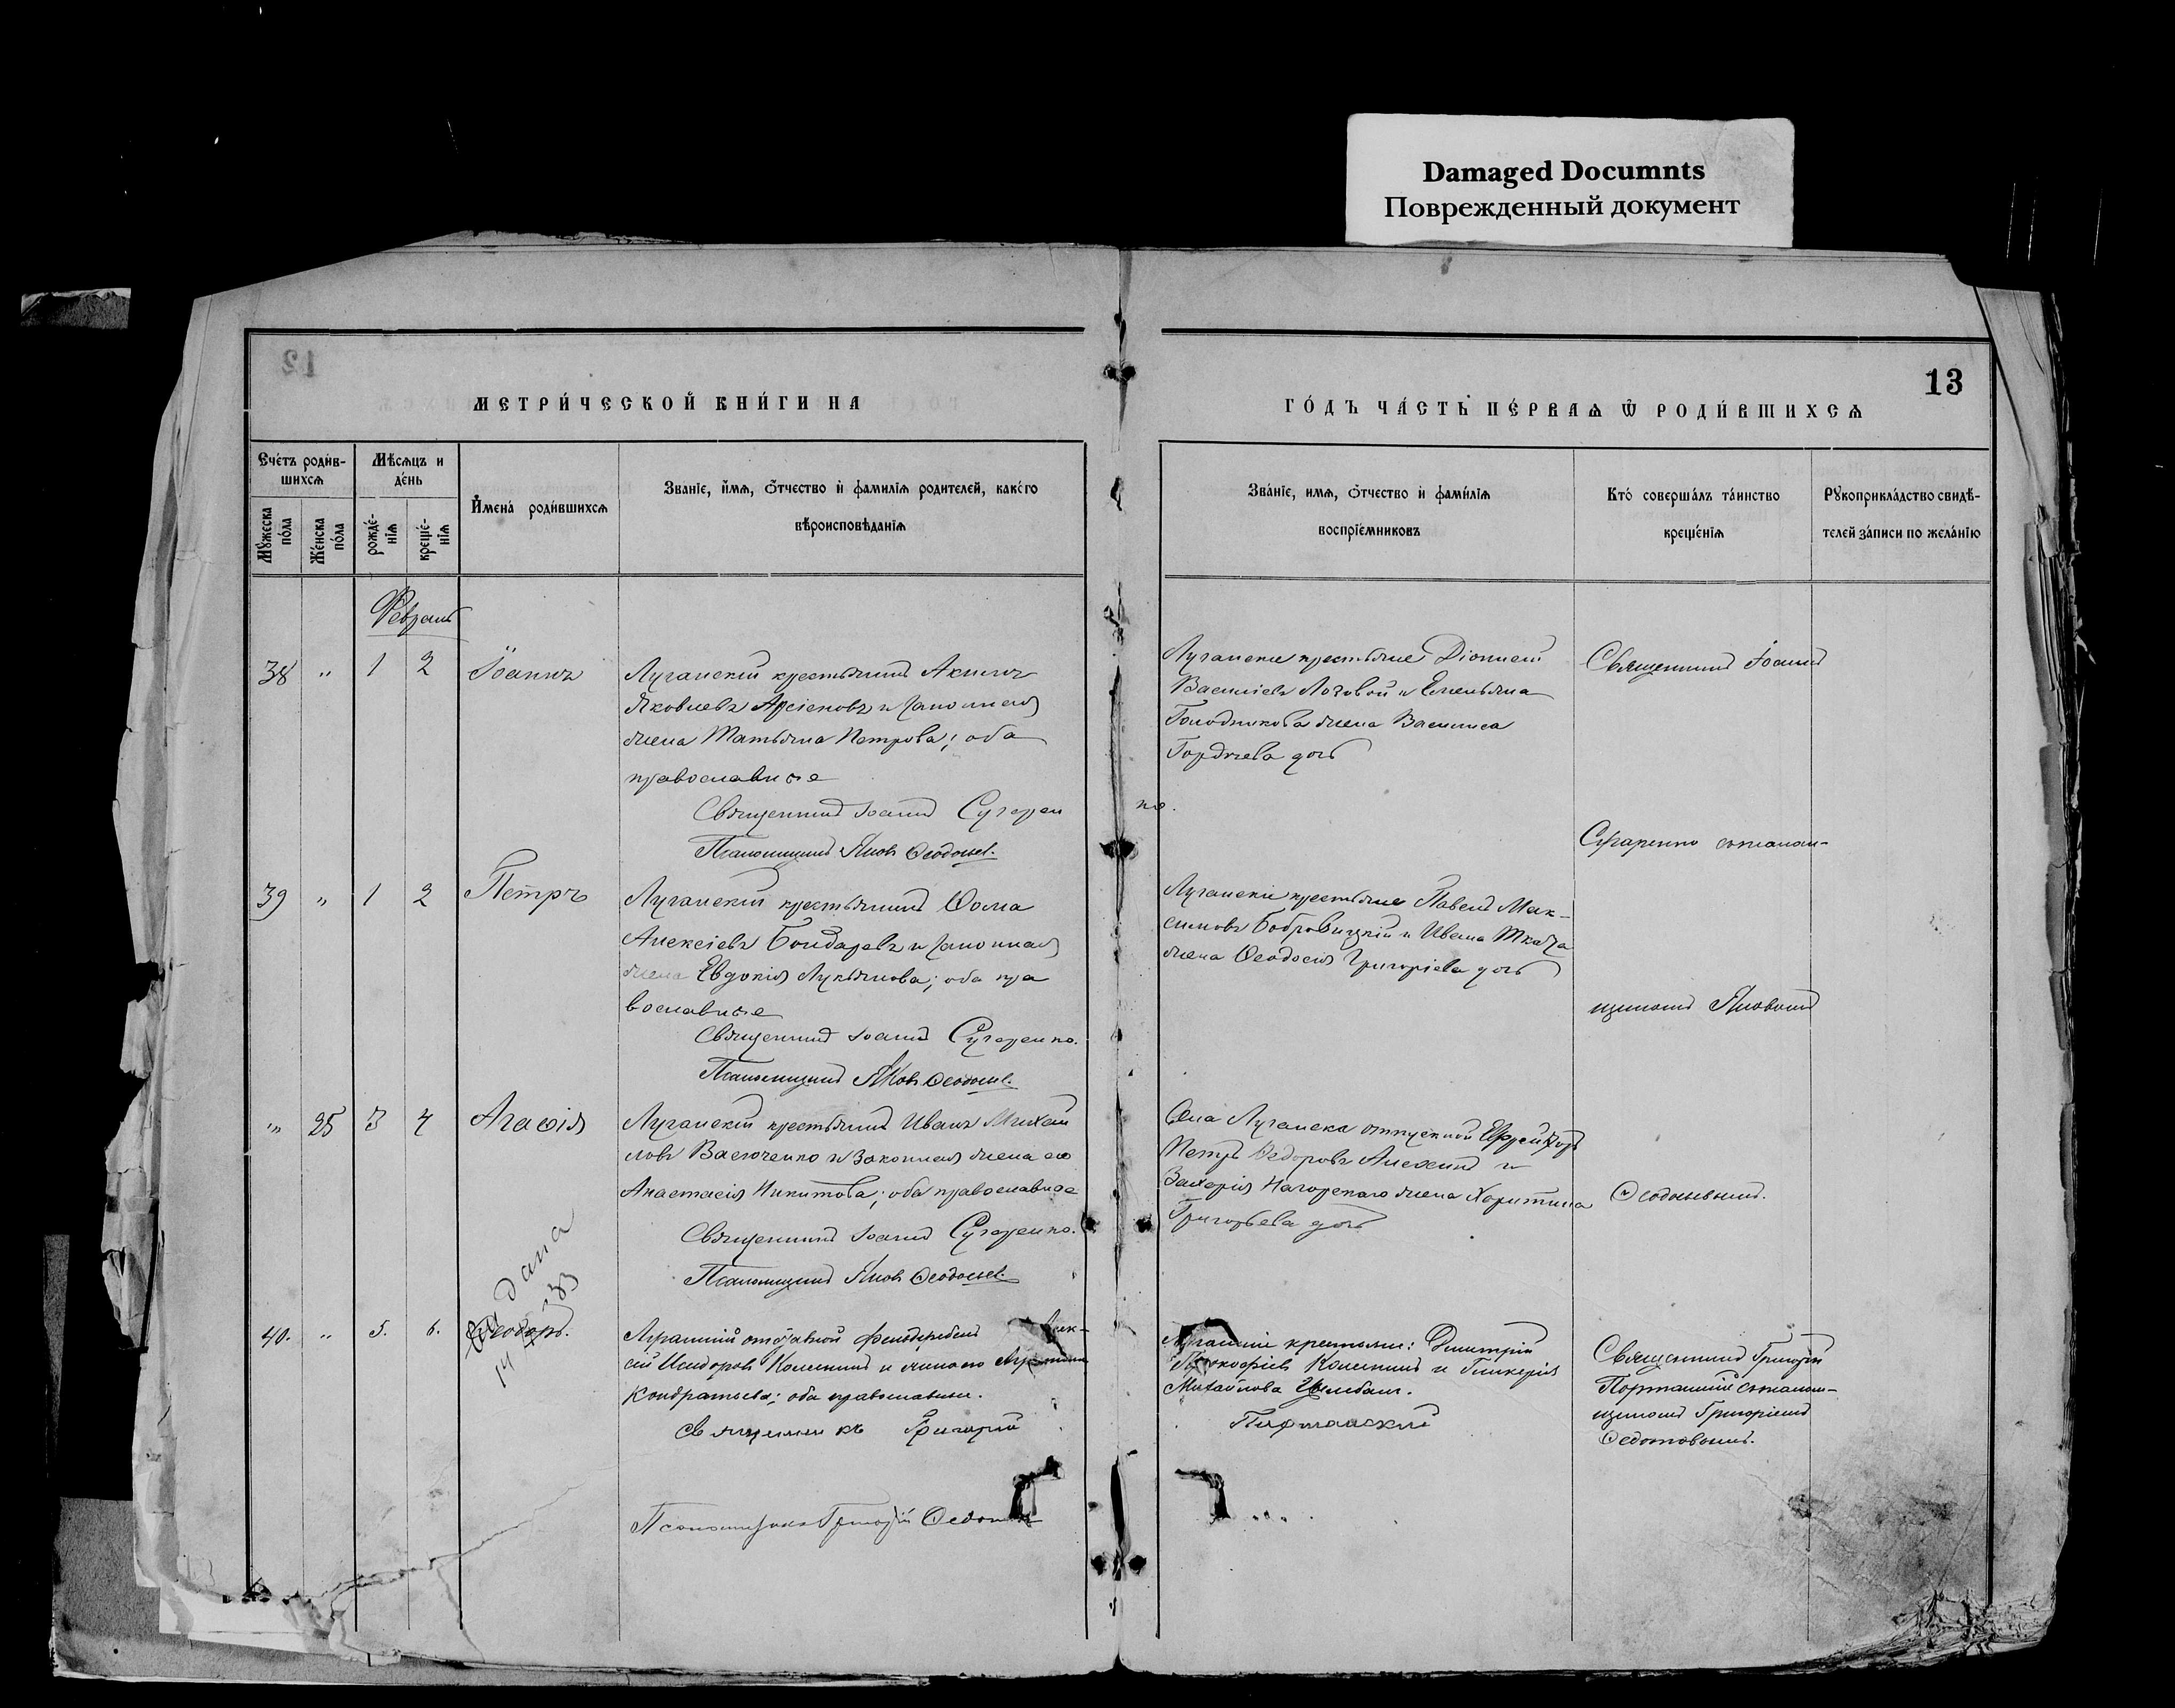 Damaged Documnts
Поврежденный документ
12
13
МЕТРИ́ЧЕСКОЙ КНИ́ГИ НА
ГО́ДЪ ЧА́СТЬ ПЕ́РВАѦ Ѿ РОДИ́ВШИХСѦ
Счетъ роди́в-
шихсѧ
Мꙋжеска по́ла
Же́нска по́ла
Мѣсѧцъ и
де́нь
рожде́-
нїѧ
креще́-
нїѧ
И҆мена̀ роди́вшихсѧ
Званїе, и҆мѧ, ѻ҆тчество и҆ фамилїѧ родителей, како́го
вѣроисповѣданїѧ
Зва́нїе, имѧ, ѻ҆тчество и҆ фами́лїѧ
воспрїе́мниковъ
Кто́ соверша́лъ та́инство
креще́нїѧ
Рꙋкоприкла́дство свидѣ̑-
телей за́писи по жела́нїю
Февраль
38 " 1 2 Іоаннъ
Луганскій крестьянинъ Акимъ
Яковлевъ Арсеновъ и законная
жена Татьяна Петрова; оба
православные
Священникъ Іоаннъ Сугарен
ко.
Псаломщикъ Яковъ Ѳеодосьев.
Луганскіе крестьяне Діонисій
Васильевъ Лозовой и Емельяна
Голодникова жена Василиса
Гордѣева дочь
Священникъ Іоаннъ
Сугаренко съ псалом-
39 " 1 2 Петръ
Луганскій крестьянинъ Ѳома
Алексѣевъ Бондаревъ и законная
жена Евдокія Лукьянова; оба пра
вославные
Священникъ Іоаннъ Сугаренко.
Псаломщикъ Яковъ Ѳеодосьев.
Луганскіе крестьяне Павелъ Мак-
симовъ Бобровицкій и Ивана Ткача
жена Ѳеодосія Григоріева дочь
щикомъ Яковомъ
" 25 3 4 Агаѳія
Луганскій крестьянинъ Иванъ Михай
ловъ Васюченко и законная жена его
Анастасія Никитова; оба православные
Священникъ Іоаннъ Сугаренко.
Псаломщикъ Яковъ Ѳеодосьев.
Села Луганска отпускной Ефрейторъ
Петръ Ѳедоровъ Алехинъ и
Захарія Нагорнаго жена Харитина
Григорьева дочь
Ѳеодосьевымъ.
40. " 5. 6. Ѳеодоръ.
Выдана
14
33
Луганскій отставной
сій Исидоровъ Колесникъ и жена его
Кондратьева; оба православные.
Священникъ Григорій
Псаломщикъ Григорій Ѳедотов
Луганскіе крестьяне: Димитрій
Прокофіевъ Колесникъ и Гликерія
Михайлова Цымбалъ.
Портянскій
Священникъ Григорій
Портянскій съ псалом-
щикомъ Григоріемъ
Ѳедотовымъ.